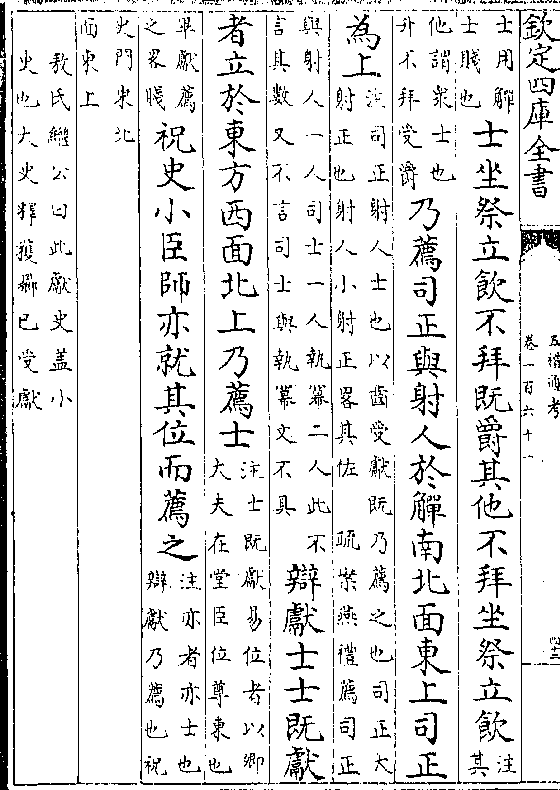 欽定四庫全書
五禮通考
卷一百六十一
士用觶
士賤也
士坐祭立飲不拜既爵其他不拜坐祭立飲
注
其
他謂衆士也
升不拜受爵
乃薦司正與射人於觶南北面東上司正
為上
注司正射人士也以齒受獻既乃薦之也司正大
射正也射人小射正畧其佐 疏案燕禮薦司正
與射人一人司士一人執冪二人此不
言其數又不言司士與執冪文不具
辯獻士士既獻
者立於東方西面北上乃薦士
注士既獻易位者以卿
大夫在堂臣位尊東也
畢獻薦
之畧賤
祝史小臣師亦就其位而薦之
注亦者亦士也
辯獻乃薦也祝
史門東北
面東上
敖氏繼公曰此獻史蓋小
史也大史釋獲鄉已受獻